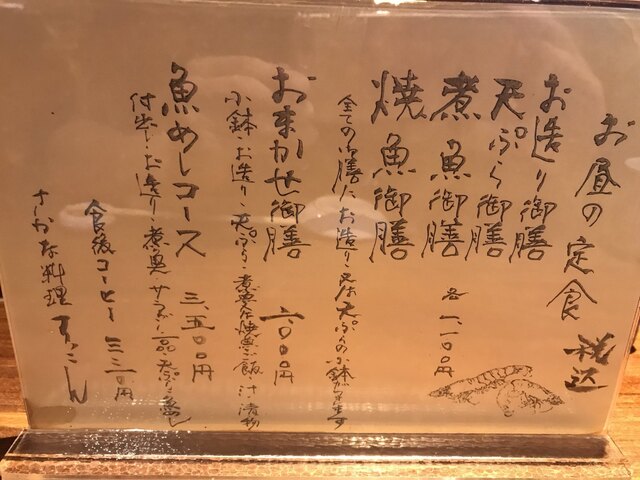 お昼の定食 税込
お造り御膳
天ぷら御膳
煮魚御膳 各一、一〇〇円
焼魚御膳
全ての御膳にお造り又は天ぷらの小鉢が付きます
おまかせ御膳
小鉢・お造り・天ぷら・煮魚又は焼魚・ご飯・汁・漬物
魚めしコース 三、五〇〇円
付出し・お造り・煮魚
食後コーヒー 三三〇円
さかな料理